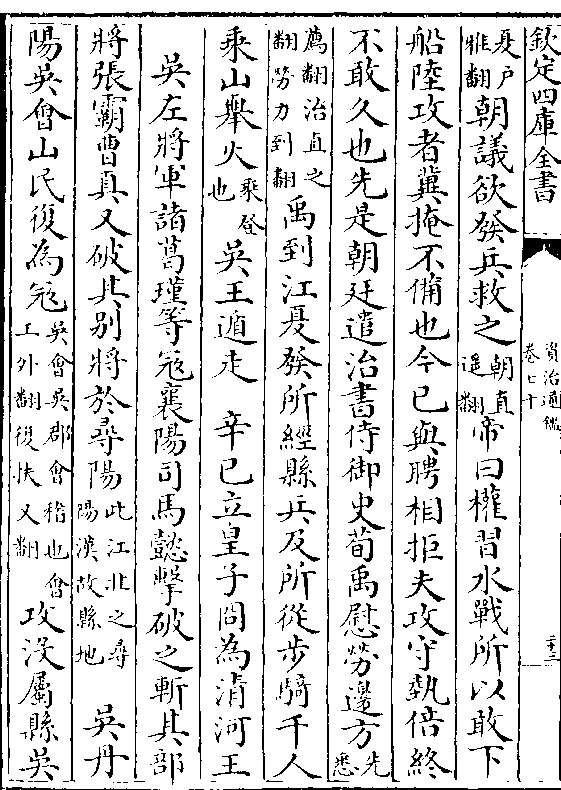 欽定四庫全書
資治通鑑
卷七十
二十三
夏戶雅翻朝議欲發兵救之朝直遥翻帝曰權習水戰所以敢下
船陸攻者冀掩不備也今已與聘相拒夫攻守埶倍終
不敢久也先是朝廷遣治書侍御史荀禹慰勞邊方先悉
薦翻治直之翻勞力到翻禹到江夏發所經縣兵及所從步騎千人
乘山舉火乘登也吳王遁走 辛巳立皇子冏為清河王
吳左將軍諸葛瑾等宼襄陽司馬懿擊破之斬其部
將張霸曹真又破其别將於尋陽此江北之尋陽漢故縣地 吳丹
陽吳會山民復為宼吳會吳郡會稽也會工外翻復扶又翻攻没屬縣吳